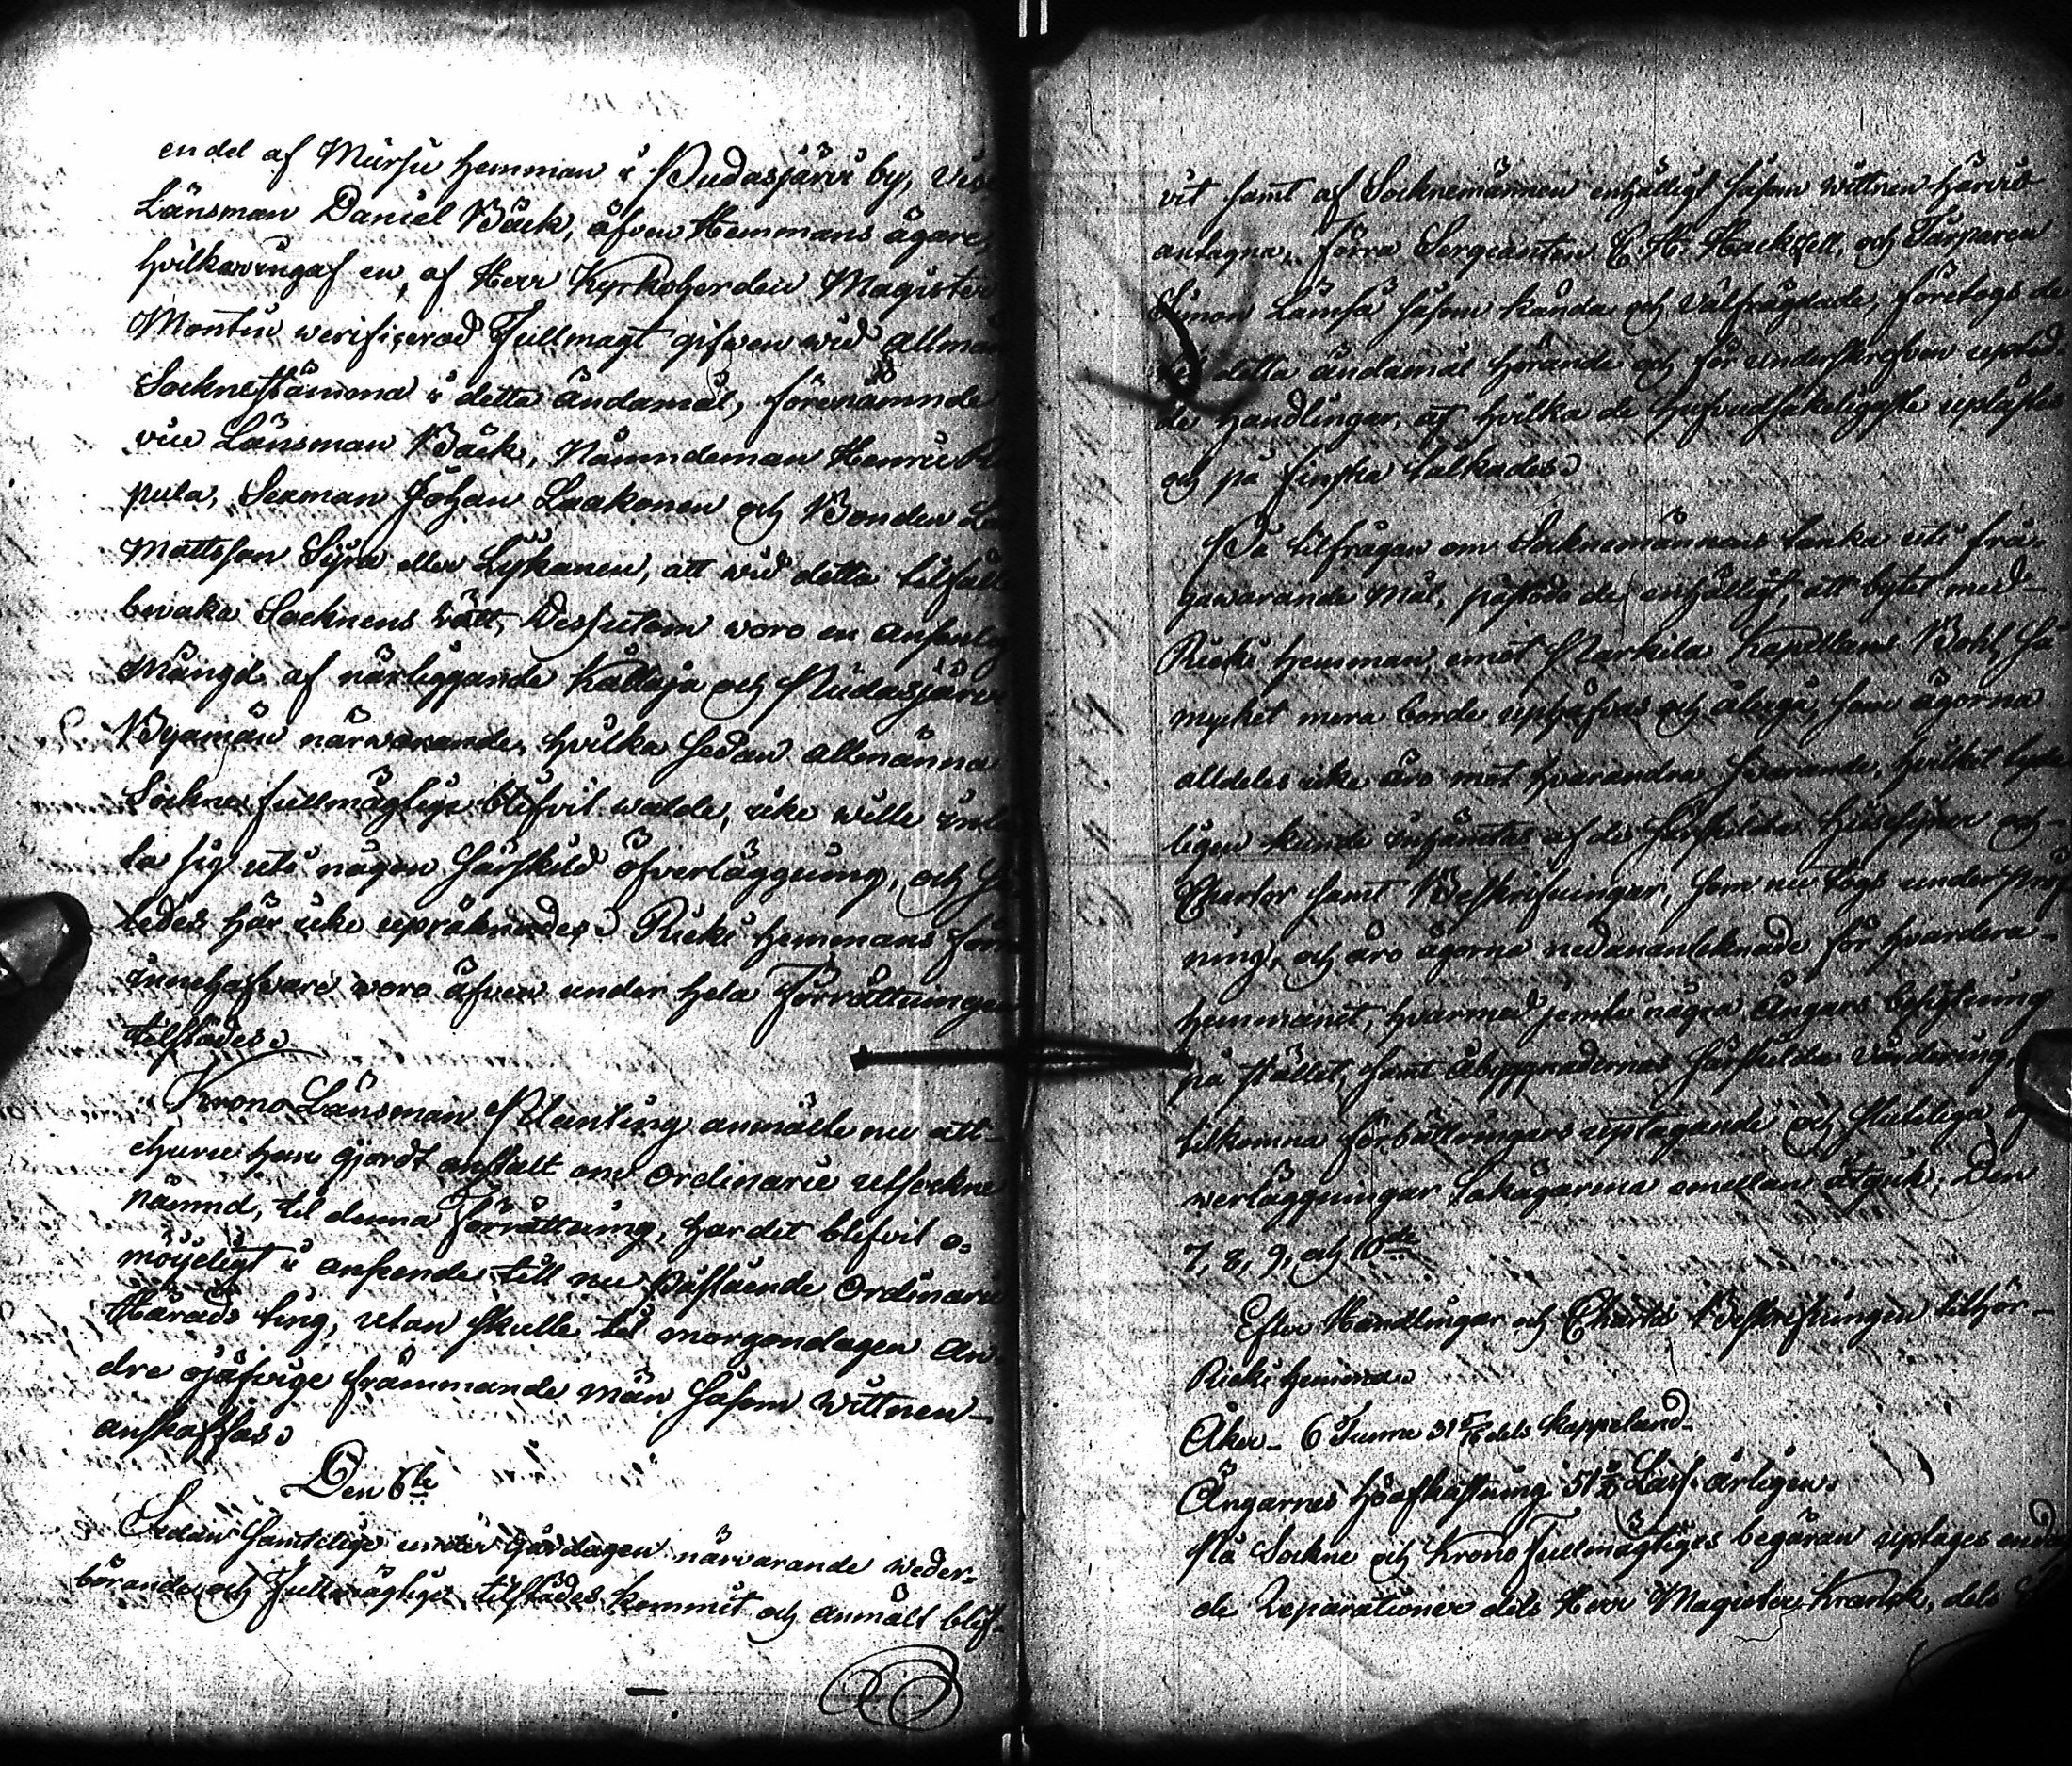 en del af Mursu hemman i Pudasjärvi by, Vice
Länsman Daniel Bäck, äfven Hemmans ägare,
hvilka ingaf en, af Herr Kyrkoherden Magister
Montin verificerad Fullmagt gifwen wid allmän
Socknestämma i detta ändamål, förenämnde
vice Länsman Bäck, Nämndeman Henric
pula, Sexman Johan Laakonen och Bonden
Mattsson Syrn eller Lyskanen, att wid detta tilfälle
bevaka Socknens rätt, Dessutom voro en ansenlig
Mängd af närliggande Kållaja och Pudasjärvi
Byamän närwarande, hvilka sedan allmänna
Sockne fullmägtige blifvit walde, icke wille inlå
ta sig uti någon särskild öfverläggning, och så
ledes här icke upräknades. Rieki hemmans förra
innehafware woro äfven under hela Förrättningen
tilstädes.
Krono Länsman Planting anmälte nu att
ehuru han gjordt anstalt om Ordinarie utsockne
nämnd, til denna Förrättning, har det blifvit o-
möyeligt i anseende till nu påstående Ordinarie
Härads ting, utan skulle til morgondagen an-
dre ojäfvige främmande Män såsom Wittnen
anskaffas.
Den 6te
Sedan samtelige under gårdagen närvarande weder-
börande och Fullmägtiger tilstädes kommit och anmält blif-
vit samt af Socknemännen enhälligt såsom wittnen härvid
antagna, Förra Sergeanten C. H. Hackzell, och Torparen
Simon Lämsä såsom kända och välfrägdade, företogs de
til detta ändamål hörande och för underskrefven upted
de handlingar, af hvilka de hufvudsakeligaste uplästes
och på finska tålkades.
På tilfrågan om Socknemännens tanka uti frå-
gavarande Mål, påstodo de enhälligt, att bytet med
Rieki hemman emot Narkila Kapellans Bohl, så
mycket mera borde uphäfvas och återgå, som ägorna
alldeles icke äro mot hvarandra svarande, hvilket tyde
ligen kunde inhämtas af de särskilda Husesyner och
Chartor samt Beskrifningar, som nu togs under skärsk
ning, och äro ägorna nedanantecknade för hvardera
hemmanet, hvarmed jemte några Ängars besigtning
på stället, samt Åbyggnadernas särskilda värdering,
tilkomna förbättringars uptagande och slutliga öf
werläggningar Sakägarena emellan åtgick; Den
7, 8, 9, och 10de
Efter Handlingar och Charta Beskrifningen tilhör
Rieki hemman.
Åker - 6 Tunne 31 5/16 dels kappeland.
Ängarnes höafkastning 51 1/2 Lass årligen.
På Sockne och Krono Fullmägtiges begäran uptages endast
de Reparationer dels Herr Magister Kranck, dels